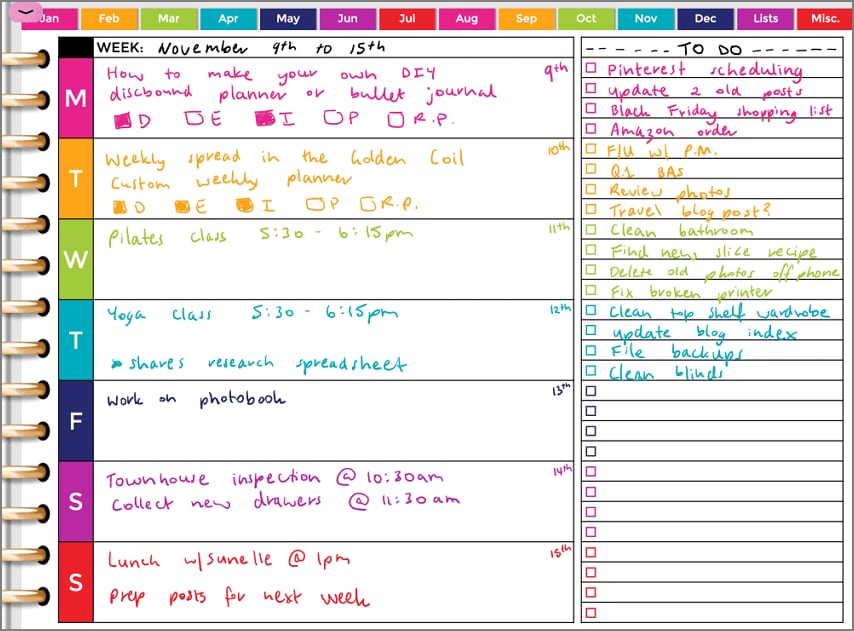 Jan Feb Mar Apr May Jun Jul Aug Sep Oct Nov Dec Lists Misc.
WEEK: November 9th to 15th
M
How to make your own DIY 9th
discbound planner or bullet journal
D E I P R.P.
T
Weekly spread in the Golden Coil 10th
Custom weekly planner
D E I P R.P.
W
Pilates class 5:30 - 6:15pm 11th
T
Yoga class 5:30 - 6:15pm 12th
shares research spreadsheet
F
Work on photobook 13th
S
Townhouse inspection @ 10:30am 14th
Collect new drawers @ 11:30am
S
Lunch w/ Sunelle @ 1pm 15th
Prep posts for next week
TO DO
Pinterest scheduling
update 2 old posts
Black Friday shopping list
Amazon order
F/U w/ P.M.
Q1 BAS
Review photos
Travel blog post?
Clean bathroom
Find new slice recipe
Delete old photos off phone
Fix broken printer
Clean top shelf wardrobe
update blog index
File backups
Clean blinds